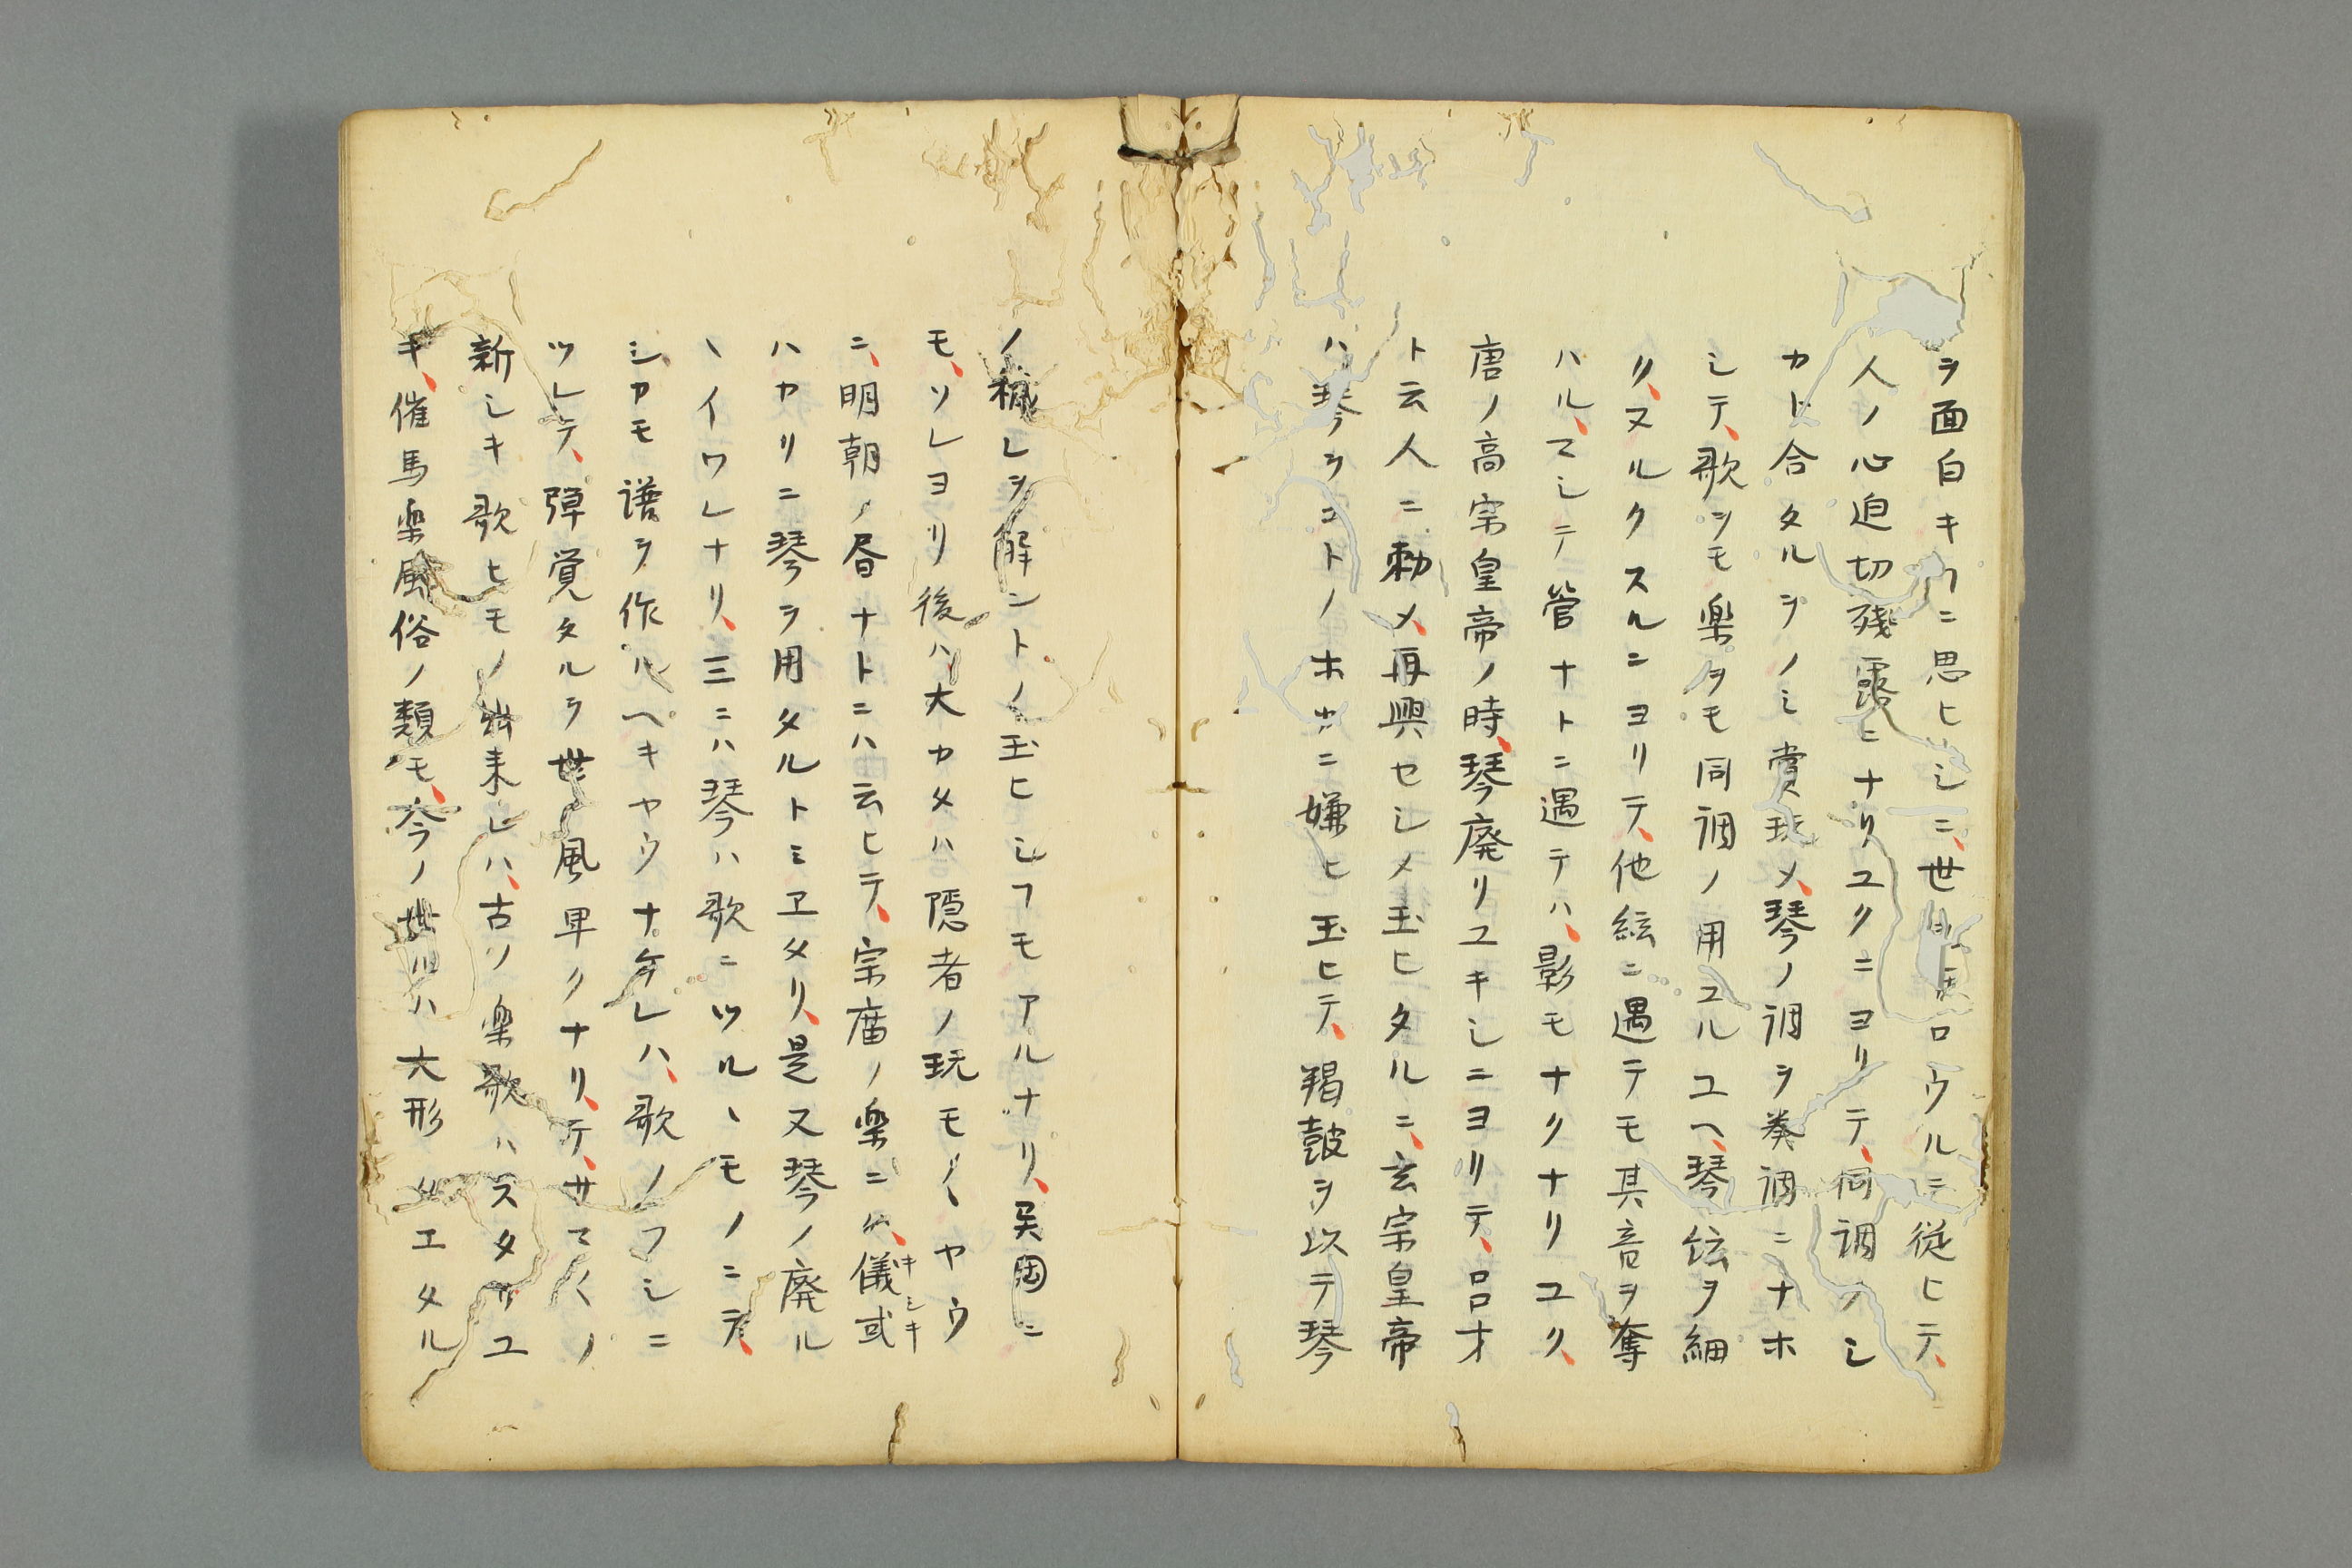 ヲ面白キ㕝ニ思ヒシニ、世ノロウルニ従ヒテ、
人ノ心迫切殘露ニナリユクニヨリテ、同調ノシ
カト合タルヲノミ賞玩メ、琴ノ調ヲ奏調ニナホ
シテ、歌シモ楽タモ同調ノ用ユルユヘ、琴絃ヲ細
リ、ヌルクスルニヨリテ、他絃ニ遇テモ其音ヲ奪
ハル、マシテ管ナトニ遇テハ、影モナクナリユク、
唐ノ高宗皇帝ノ時、琴廃リユキシニヨリテ、呂才
ト云人ニ勅メ、再興セシメ玉ヒタルニ、玄宗皇帝
ハ、琴ヲコトノホカニ嫌ヒ玉ヒテ、羯鼓ヲ以テ琴
ノ穢レヲ解ントノ玉ヒシフモアルナリ、吴國ニ
モ、ソレヨリ後ハ大カタハ隠者ノ玩モノヽヤウ
ニ、明朝ノ昏ナトニハ云ヒテ、宗庿ノ楽ニハ、儀式キシキ
ハカリニ琴ヲ用タルトミヱタリ、是又琴ノ廃ル
ヽイワレナリ、三ニハ琴ハ歌ニツルヽモノニテ、
シカモ譜ヲ作ルヘキヤウナケレハ、歌ノフシニ
ツレテ、弾覚タルヲ世ノ風早クナリ、テ、サマ〱ノ
新シキ歌ヒモノ出来レハ、古ノ楽歌ハスタリユ
キ、催馬楽風俗ノ類モ、今ノ世ニハ大形タエタル